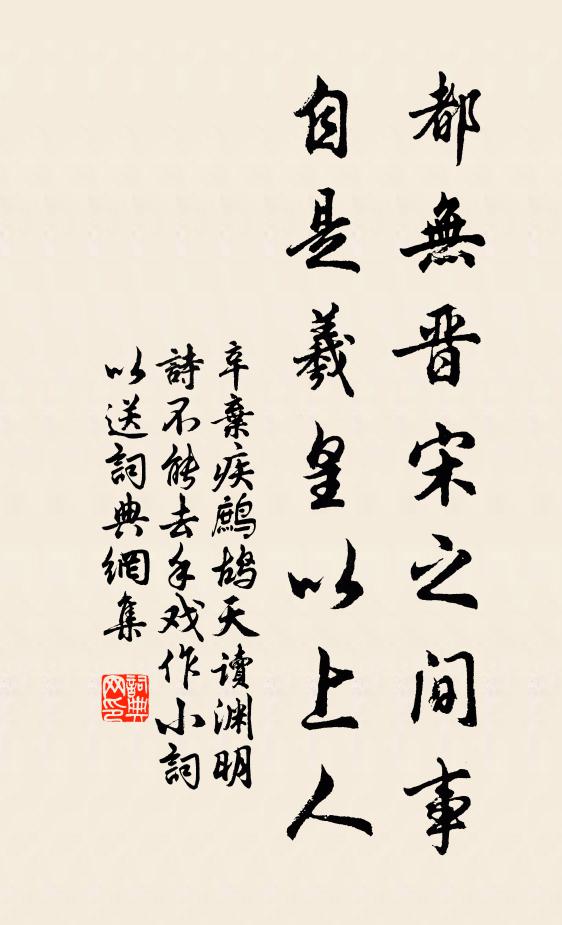 都無晋宋之间事
自是羲皇以上人
辛棄疾鷓鴣天讀渊明
詩不能去手戏作小詞
以送詞典網集
詞典
网印